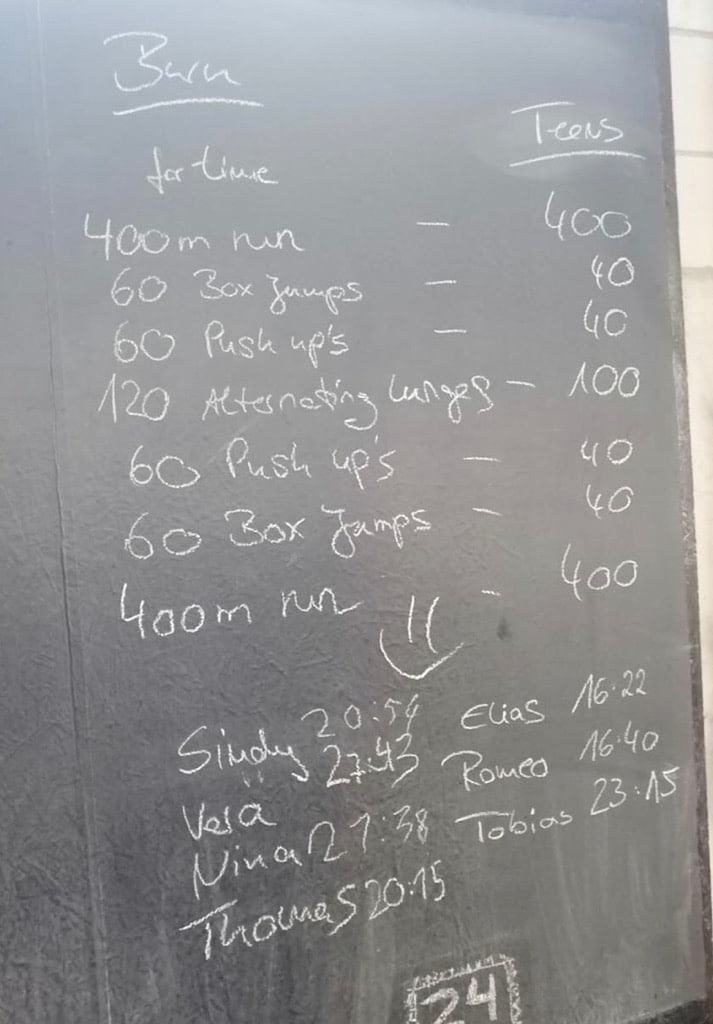 Burn
Teens
for time
400m run - 400
60 Box Jumps - 40
60 Push up's - 40
120 Alternating lunges - 100
60 Push up's - 40
60 Box Jumps - 40
400m run - 400
Sindy 20:54 Elias 16:22
Vera 27:43 Romeo 16:40
Nina 21:38 Tobias 23:15
Thomas 20:15
24